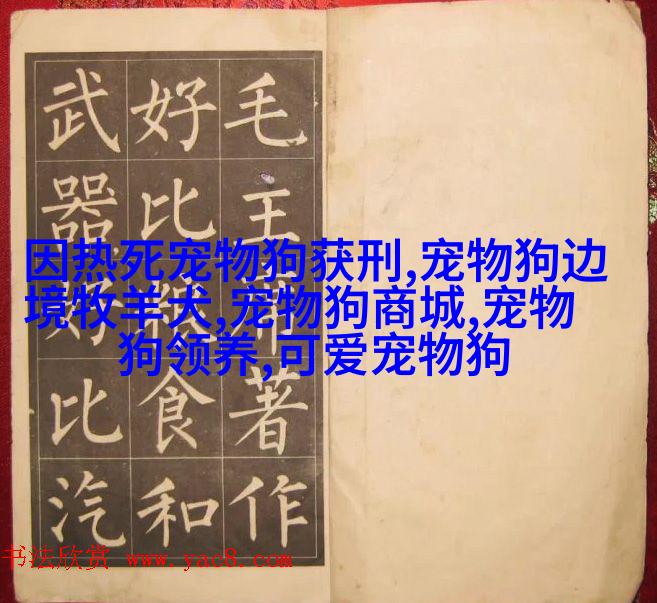 毛主席著作
好比粮食和
武器好比汽
因热死宠物狗获刑,宠物狗边
境牧羊犬,宠物狗商城,宠物
狗领养,可爱宠物狗
书法欣赏 www.yac8.com